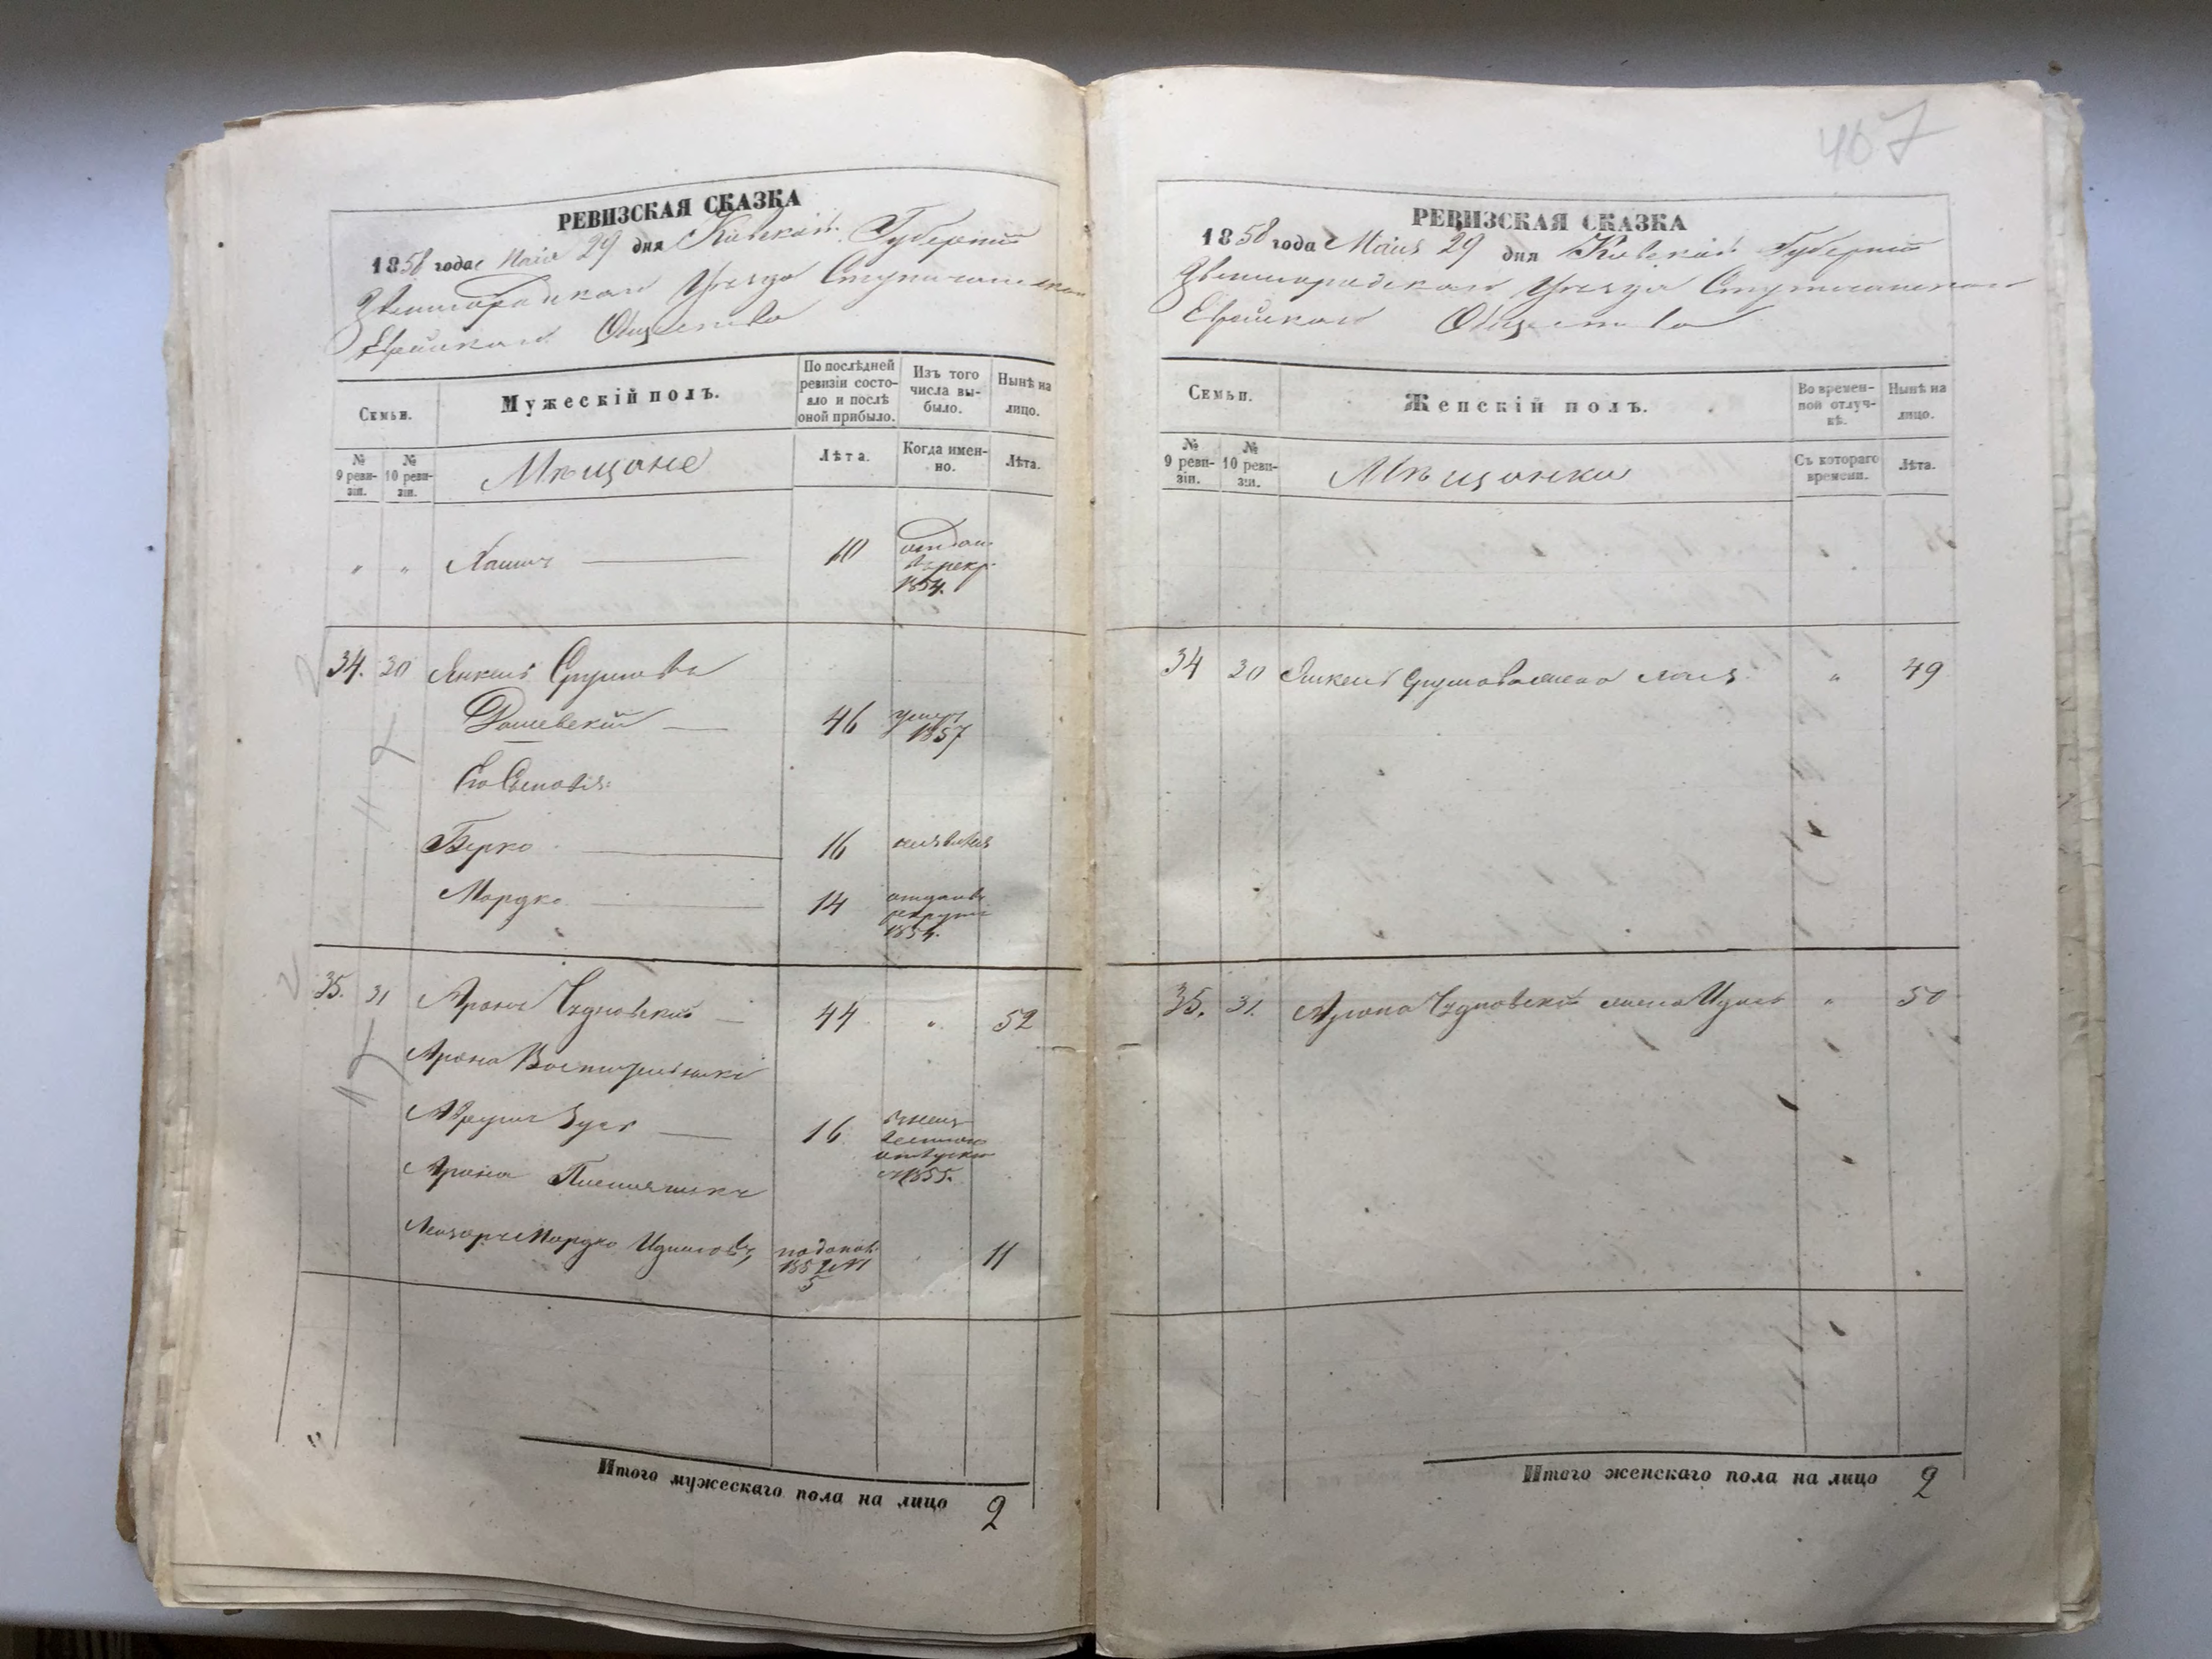 407
РЕВИЗСКАЯ СКАЗКА
1858 года Маія 29 дня Кіевской Губерніи
Звенигородскаго Уѣзда
Еврейскаго Общества
Семьи.
Мужескій полъ.
По послѣдней ревизіи состояло и послѣ оной прибыло.
Изъ того числа выбыло.
Нынѣ на лицо.
№ 9 ревизіи.
№ 10 ревизіи.
Мѣщане
Лѣта.
Когда именно.
Лѣта.
" " 10 отдан въ рекр. 1854.
34. 30 Янкель Сруловъ
Рашевскій 46 умеръ 1857
Его Сыновья:
Берко 16
Мордко 14 отданъ рекруты 1854.
35. 31 Аронъ Чудновскій 44 " 52
Арона Воспитанники
16 1855.
Арона Племянникъ
Лейзоръ Мордко 11
Итого мужескаго пола на лицо 2
РЕВИЗСКАЯ СКАЗКА
1858 года Маія 29 дня Кіевской Губерніи
Звенигородскаго Уѣзда
Еврейскаго Общества
Семьи.
Женскій полъ.
Во временной отлучкѣ.
Нынѣ на лицо.
№ 9 ревизіи.
№ 10 ревизіи.
Мѣщанки
Съ котораго времени.
Лѣта.
34 30 Янкеля жена " 49
35. 31. Арона Чудновскаго жена " 50
Итого женскаго пола на лицо 2